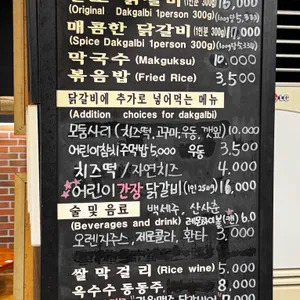 닭갈비 (1인분 300g) 16,000
(Original Dakgalbi 1person 300g)
매콤한 닭갈비 (1인분 300g) 17,000
(Spice Dakgalbi 1person 300g)
막국수 (Makguksu) 10,000
볶음밥 (Fried Rice) 3,500
닭갈비에 추가로 넣어먹는 메뉴
(Addition choices for dakgalbi)
모둠사리 (치즈떡, 고구마, 우동, 깻잎) 10,000
어린이참치주먹밥 5,000 우동 3,500
치즈떡 / 자연치즈 4,000
어린이 간장 닭갈비 (1인 250g) 16,000
술 및 음료 백세주, 산사춘
(Beverages and drink) 6.0
오렌지주스, 제로콜라, 환타 3,000
쌀 막걸리 (Rice wine) 5,000
옥수수 동동주 8,000